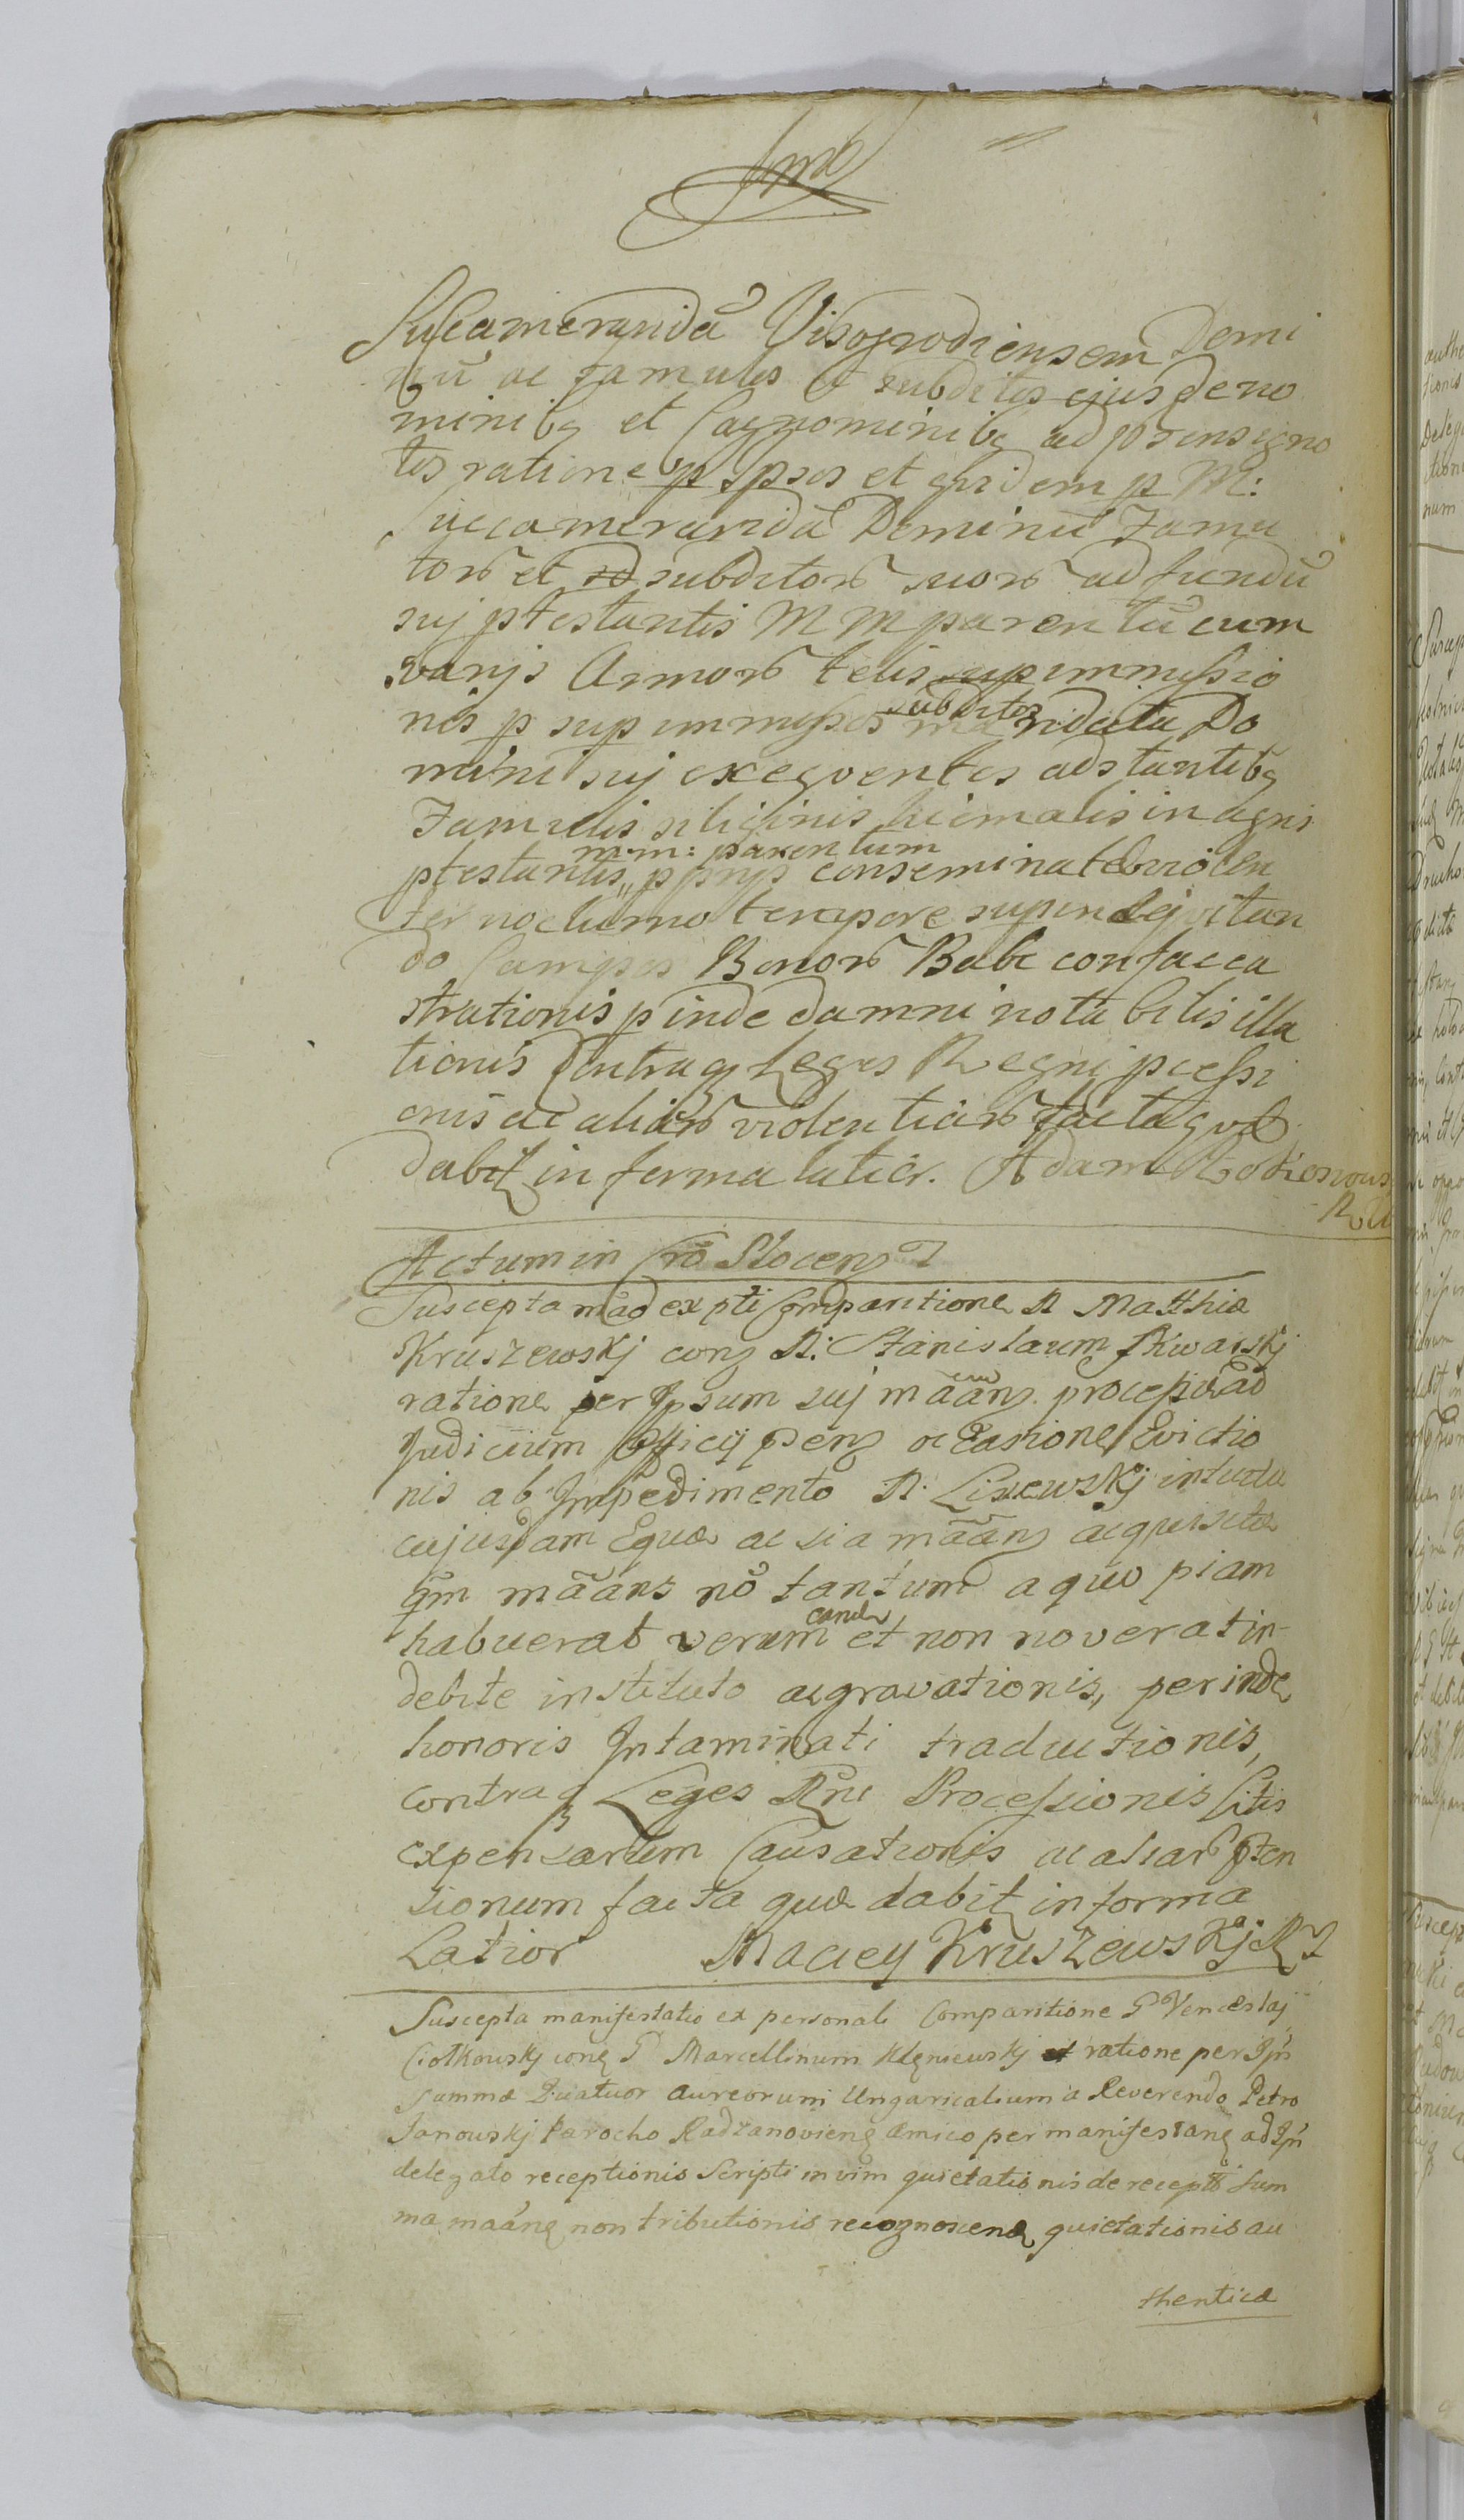 Succameranidã Visogrodiensem Domi
nũ ac famulos et subditos ejus de no
minibq et Cognominibq ad prms igno
tos ratione p Ipsos et qvidem p M:
Succameranidã Dominũ Famu
lorũ et subditorũ suorũ ad fundũ
suj ptestantis M M parentũ cum
varijs Armorũ telis sup immissio
nis p sup immissos subditos mandata Do
mini suj exeqventes adstantibq
Famulis siliginis hiemalis in agris
ptestantis m:m: parentum p prijs conseminatae violen
ter nocturno tempore supineqvitan
do Campos Bonorũ Babe confacca
strationis p inde damni notabilis illa
tionis Contraq Leges Regni pcessi
onis ac aliarũ violentiarũ facta qvae
dabit in forma latior. Adam
Actum in Cro Plocens
Suscepta mãõ ex psti Comparitione N Matthiae
Kruszewskj cons N: Stanislaum Skwarskj
ratione per Ipsum suj mããns processio ad
Judicium Officij Pens occasione Evictio
nis ab Impedimento N: Lisiewskj intuitu
cujusdam Equae ac si a mããns acquisitae
qm mããns nõ tantum a quo piam
habuerat verum eand et non noverat in-
debite instituto acgravationis, perinde
honoris Intaminati traductionis,
contraq Leges Rni Processionis Litis
expensarum Causationis ac aliarũ pten
sionum facta quae dabit in forma
Latior Maciey Kruszewskj
Suscepta manifestatio ex personali Comparitione G Venceslaj
Ciołkowskj cons G Marcellinum Klęniewskj ratione per Ipm
summae Quatuor aureorum Ungaricalium a Reverendo Petro
Janowskj Parocho Radzanoviens amico per manifestans ad Ipm
delegato receptionis Scripti in vim quietationis de recepta sum
ma maãns non tributionis recognoscens quietationis au
thenticae